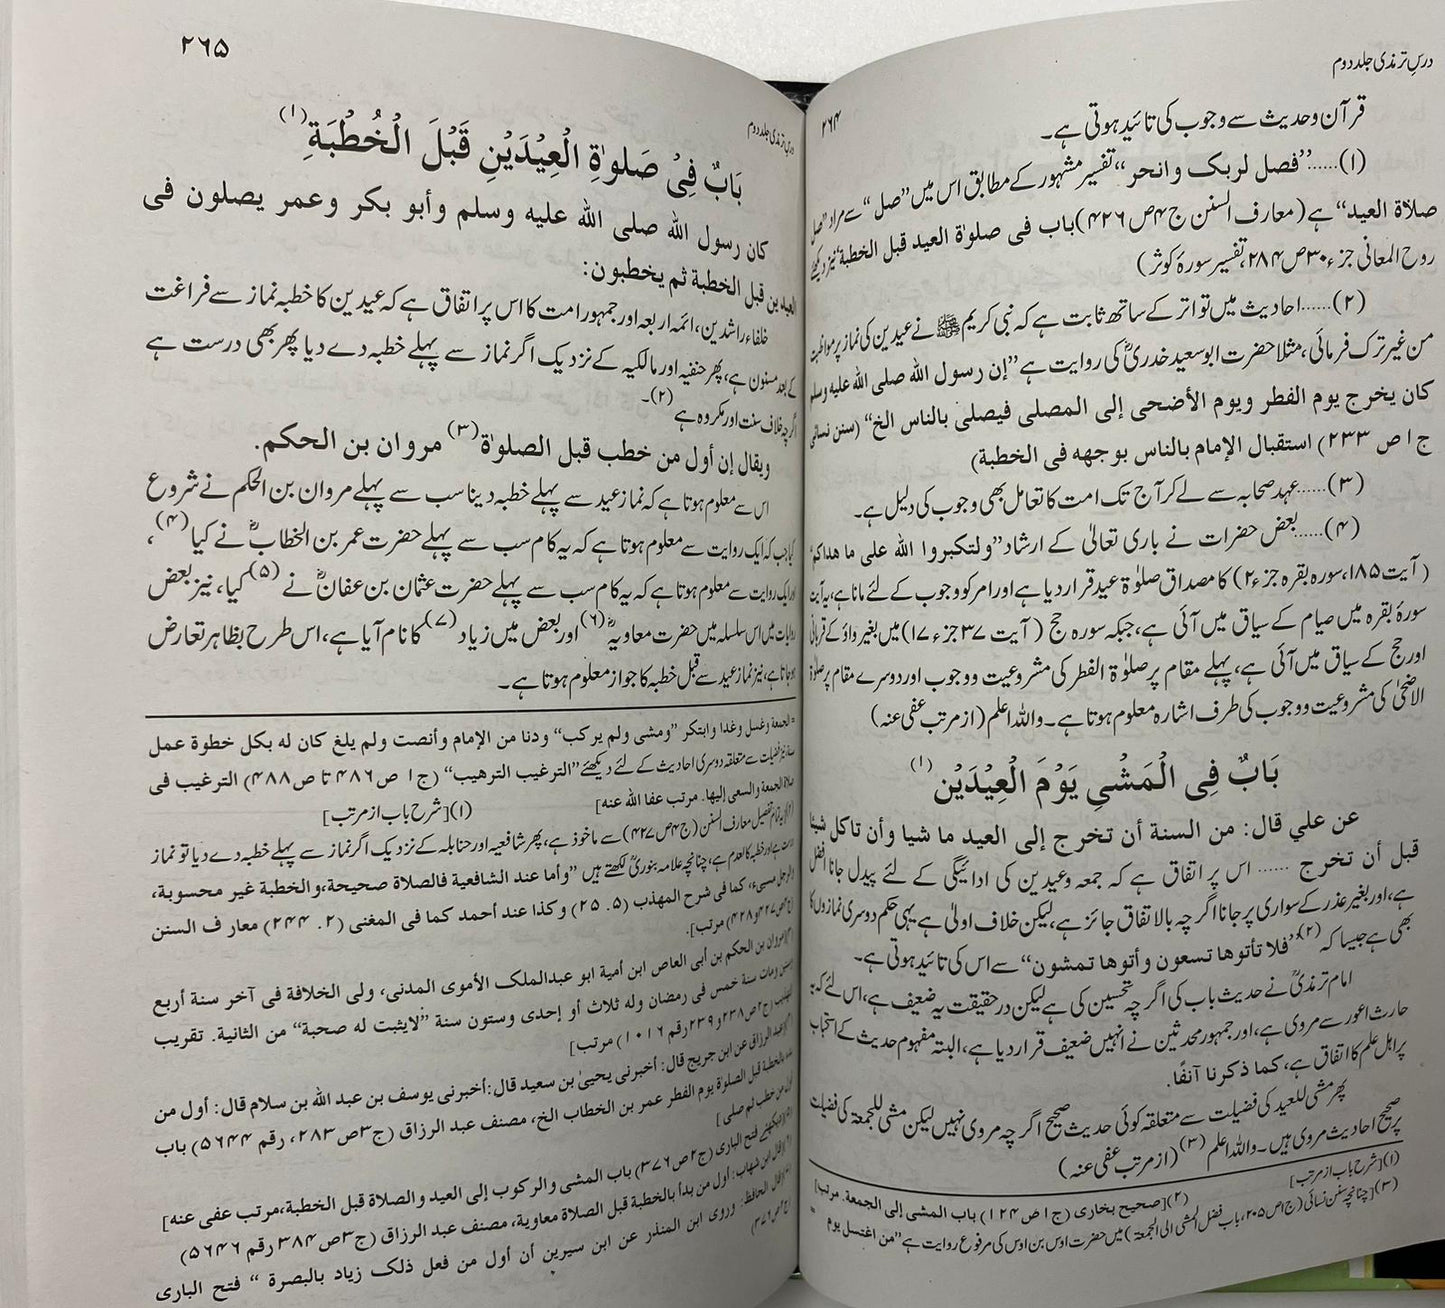 درسِ ترمذی جلد دوم
۲۶۴
قرآن و حدیث سے وجوب کی تائید ہوتی ہے۔
(۱)……”فصل لربک و انحر“ تفسیر مشہور کے مطابق اس میں ”صل“ سے مراد ”صل
صلاة العید“ ہے (معارف السنن ج۴ ص ۴۲۶) باب فی صلوٰة العید قبل الخطبة نیز دیکھئے
روح المعانی جزء ۳۰ ص ۲۸۴، تفسیر سورۂ کوثر)
(۲)……احادیث میں تواتر کے ساتھ ثابت ہے کہ نبی کریم ﷺ نے عیدین کی نماز پر مواظبت
من غیر ترک فرمائی، مثلا حضرت ابو سعید خدریؓ کی روایت ہے ”إن رسول الله صلی الله علیه وسلم
کان یخرج یوم الفطر ویوم الأضحی إلی المصلی فیصلی بالناس الخ“ (سنن نسائی
ج ۱ ص ۲۳۳) استقبال الإمام بالناس بوجهه فی الخطبة)
(۳)……عہد صحابہ سے لے کر آج تک امت کا تعامل بھی وجوب کی دلیل ہے۔
(۴)……بعض حضرات نے باری تعالیٰ کے ارشاد ”ولتکبروا الله علی ما هداکم“
(آیت ۱۸۵، سورہ بقرہ جزء ۲) کا مصداق صلوٰة عید قرار دیا ہے اور امر کو وجوب کے لئے مانا ہے، یہ آیت
سورۂ بقرہ میں صیام کے سیاق میں آئی ہے، جبکہ سورہ حج (آیت ۳۷ جزء ۱۷) میں بغیر واؤ کے قربانی
اور حج کے سیاق میں آئی ہے، پہلے مقام پر صلوٰة الفطر کی مشروعیت و وجوب اور دوسرے مقام پر صلوٰة
الاضحیٰ کی مشروعیت و وجوب کی طرف اشارہ معلوم ہوتا ہے۔ واللہ اعلم (از مرتب عفی عنہ)
بَابٌ فِی الْمَشْیِ یَوْمَ الْعِیْدَیْنِ (۱)
عن علي قال: من السنة أن تخرج إلى العید ما شیا وأن تاکل شیئا
قبل أن تخرج …… اس پر اتفاق ہے کہ جمعہ و عیدین کی ادائیگی کے لئے پیدل جانا افضل
ہے، اور بغیر عذر کے سواری پر جانا اگر چہ بالاتفاق جائز ہے، لیکن خلاف اولیٰ ہے یہی حکم دوسری نمازوں کا
بھی ہے جیسا کہ (۲) ”فلا تأتوها تسعون و أتوها تمشون“ سے اس کی تائید ہوتی ہے۔
امام ترمذیؒ نے حدیث باب کی اگر چہ تحسین کی ہے لیکن در حقیقت یہ ضعیف ہے، اس لئے کہ یہ
حارث اعور سے مروی ہے، اور جمہور محدثین نے انہیں ضعیف قرار دیا ہے، البتہ مفہوم حدیث کے استحباب
پر اہل علم کا اتفاق ہے، کما ذکرنا آنفًا.
پھر مشی للعید کی فضیلت سے متعلقہ کوئی حدیث صحیح اگر چہ مروی نہیں لیکن مشی للجمعة کی فضیلت
پر صحیح احادیث مروی ہیں۔ واللہ اعلم (۳) (از مرتب عفی عنہ)
(۱)[شرح باب از مرتب] (۲)[صحیح بخاری (ج ۱ ص ۱۲۴) باب المشی إلی الجمعة. مرتب]
(۳)[چنانچہ سنن نسائی (ج ۱ ص ۲۰۵، باب فضل المشی الی الجمعۃ) میں حضرت اوس بن اوس کی مرفوع روایت ہے ”من اغتسل یوم =
درسِ ترمذی جلد دوم
۲۶۵
بَابٌ فِیْ صَلوٰةِ الْعِیْدَیْنِ قَبْلَ الْخُطْبَةِ (۱)
کان رسول الله صلی الله علیه وسلم وأبو بکر وعمر یصلون فی
العیدین قبل الخطبة ثم یخطبون:
خلفاء راشدین، ائمہ اربعہ اور جمہور امت کا اس پر اتفاق ہے کہ عیدین کا خطبہ نماز سے فراغت
کے بعد مسنون ہے، پھر حنفیہ اور مالکیہ کے نزدیک اگر نماز سے پہلے خطبہ دے دیا پھر بھی درست ہے
اگرچہ خلاف سنت اور مکروہ ہے (۲)۔
ویقال إن أول من خطب قبل الصلوٰة (۳) مروان بن الحکم.
اس سے معلوم ہوتا ہے کہ نماز عید سے پہلے خطبہ دینا سب سے پہلے مروان بن الحکم نے شروع
کیا جب کہ ایک روایت سے معلوم ہوتا ہے کہ یہ کام سب سے پہلے حضرت عمر بن الخطابؓ نے کیا (۴)،
اور ایک روایت سے معلوم ہوتا ہے کہ یہ کام سب سے پہلے حضرت عثمان بن عفانؓ نے (۵) کیا، نیز بعض
روایات میں اس سلسلہ میں حضرت معاویہؓ (۶) اور بعض میں زیاد (۷) کا نام آیا ہے، اس طرح بظاہر تعارض
ہو جاتا ہے، نیز نماز عید سے قبل خطبہ کا جواز معلوم ہوتا ہے۔
= الجمعة وغسل وغدا وابتکر ”ومشی ولم یرکب“ ودنا من الإمام وأنصت ولم یلغ کان له بکل خطوة عمل
سنة، نیز فضیلت سے متعلقہ دوسری احادیث کے لئے دیکھئے ”الترغیب الترهیب“ (ج ۱ ص ۴۸۶ تا ص ۴۸۸) الترغیب فی
صلاة الجمعة والسعی إلیها. مرتب عفا الله عنه] (۱)[شرح باب از مرتب]
(۲)[یہ تمام تفصیل معارف السنن (ج ۴ ص ۴۲۷) سے ماخوذ ہے، پھر شافعیہ اور حنابلہ کے نزدیک اگر نماز سے پہلے خطبہ دے دیا تو نماز
درست ہے اور خطبہ کالعدم ہے، چنانچہ علامہ بنوریؒ لکھتے ہیں ”وأما عند الشافعیة فالصلاة صحیحة، والخطبة غیر محسوبة،
الرجل مسیء، کما فی شرح المهذب (۵. ۲۵) وکذا عند أحمد کما فی المغنی (۲. ۲۴۴) معار ف السنن
(ج ۴ ص ۴۲۷ و ۴۲۸) مرتب].
(۳)[مروان بن الحکم بن أبی العاص ابن أمیة ابو عبدالملک الأموی المدنی، ولی الخلافة فی آخر سنة أربع
وستین ومات سنة خمس فی رمضان وله ثلاث أو إحدی وستون سنة ”لایثبت له صحبة“ من الثانیة. تقریب
التهذیب (ج ۲ ص ۲۳۸ و ۲۳۹ رقم ۱۰۱۶) مرتب]
(۴)[عبد الرزاق عن ابن جریج قال: أخبرنی یحییٰ بن سعید قال: أخبرنی یوسف بن عبد الله بن سلام قال: أول من
بدء بالخطبة قبل الصلوٰة یوم الفطر عمر بن الخطاب الخ، مصنف عبد الرزاق (ج ۳ ص ۲۸۳، رقم ۵۶۴۴) باب
أول من خطب ثم صلی]
(۵)[دیکھئے فتح الباری (ج ۲ ص ۳۷۶) باب المشی والرکوب إلی العید والصلاة قبل الخطبة، مرتب عفی عنه]
(۶)[قال ابن شهاب: أول من بدأ بالخطبة قبل الصلاة معاویة، مصنف عبد الرزاق (ج ۳ ص ۲۸۴ رقم ۵۶۴۶)]
(۷)[قال الحافظ: وروی ابن المنذر عن ابن سیرین أن أول من فعل ذلک زیاد بالبصرة “ فتح الباری
(ج ۲ ص ۳۷۶)